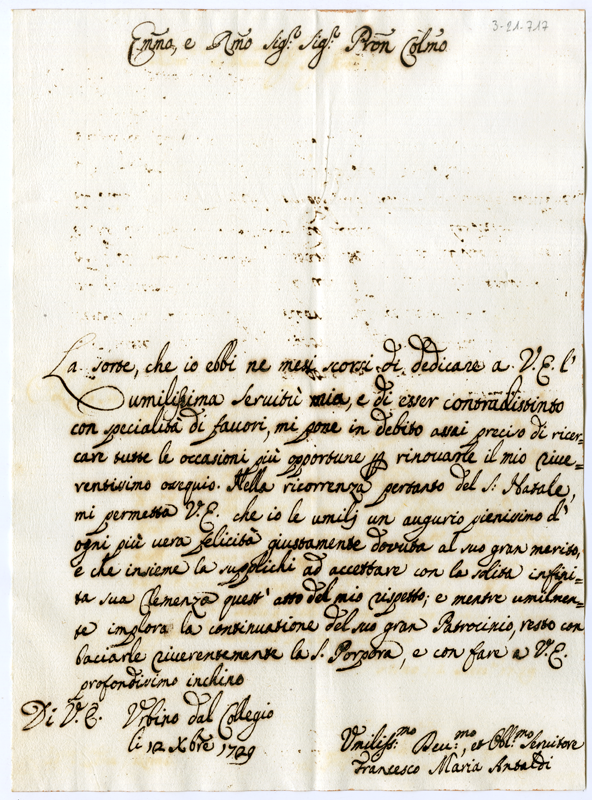 3-21.717
Em̃mo, e Rm̃o Sigr: Sigr: Pron̄ Colm̃o
La sorte, che io ebbi ne mesi scorsi di dedicare a V. E. l'
umilissima servitù mia, e di esser contradistinto
con specialità di favori, mi pone in debito assai preciso di ricer=
care tutte le occasioni più opportune per rinovarle il mio rive=
rentissimo ossequio. Nella ricorrenza pertanto del S. Natale,
mi permetta V. E. che io le umilj un augurio pienissimo d'
ogni più vera felicità giustamente dovuta al suo gran merito,
e che insieme la supplichi ad accettare con la solita infini=
ta sua Clemenza quest' atto del mio rispetto; e mentre umilmen=
te imploro la continuatione del suo gran Patrocinio, resto con
baciarle riverentemente la S. Porpora, e con fare a V. E.
profondissimo inchino
Di V. E. Urbino dal Collegio
li 12 Xbre 1729
Umilissmo Devmo, et Obblmo Servitore
Francesco Maria Antaldi